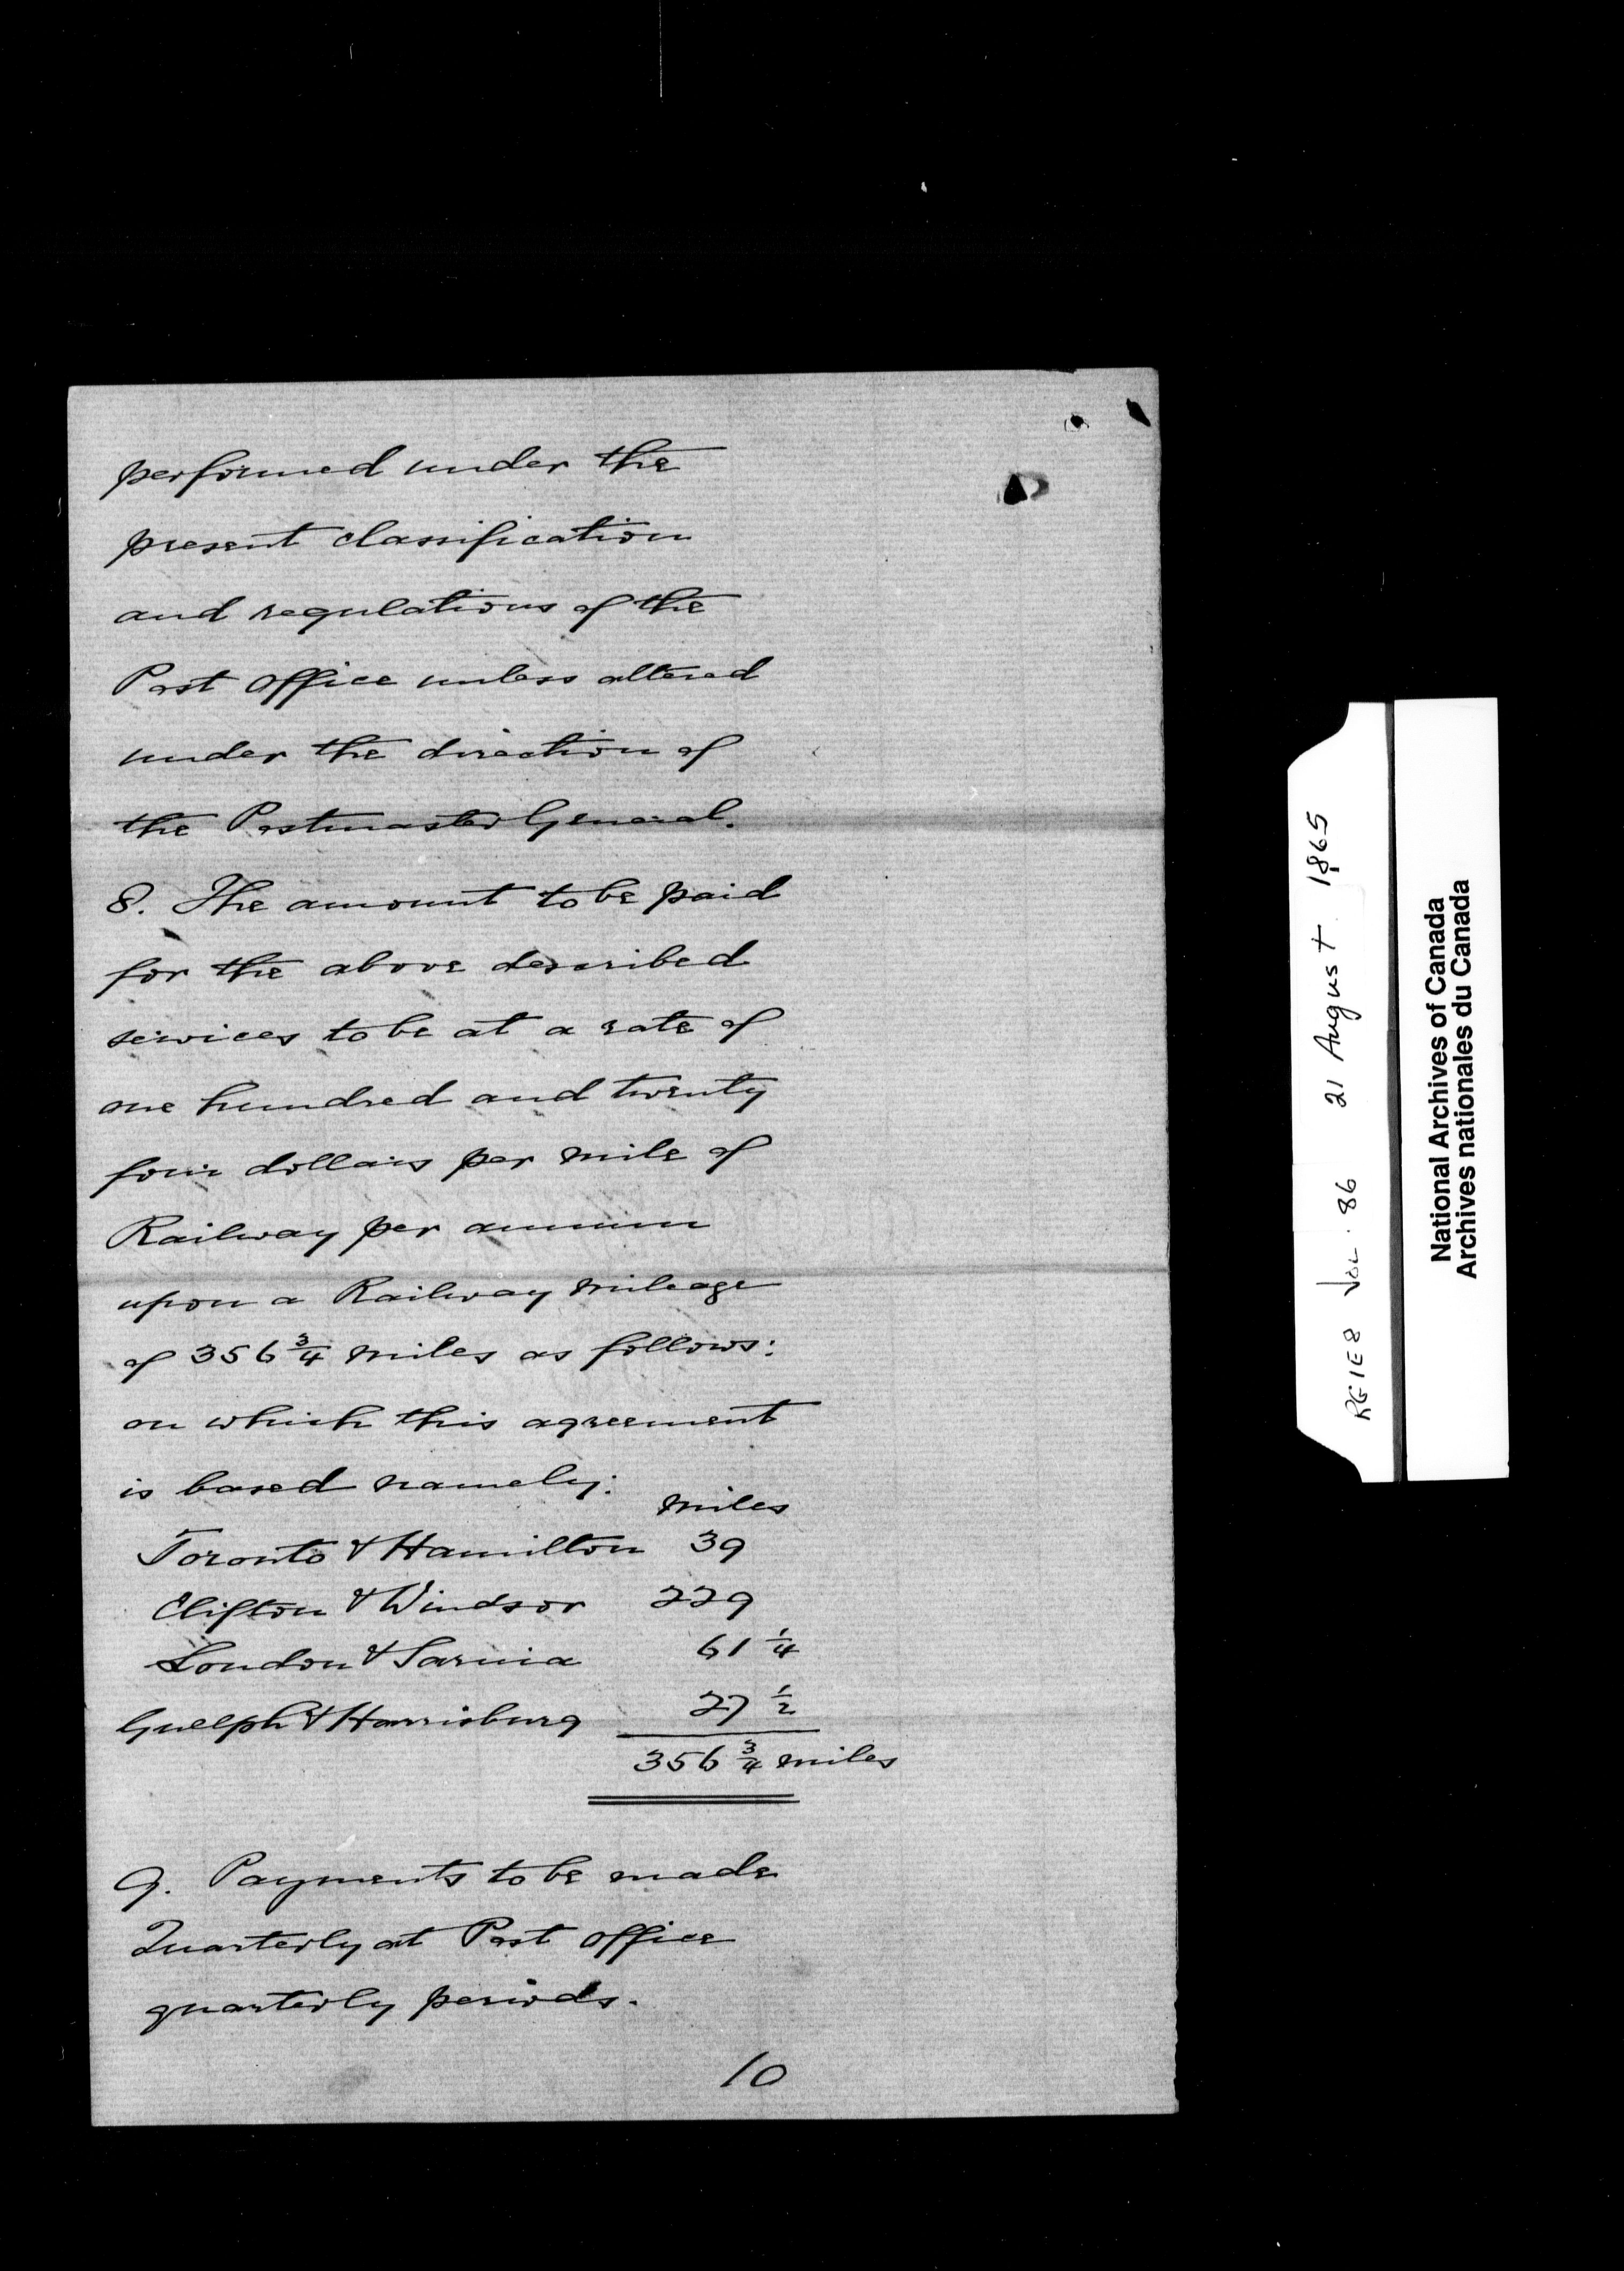 performed under the
present classification
and regulations of the
Post Office unless altered
under the direction of
the Postmaster General.
8. The amount to be paid
for the above described
services to be at a rate of
one hundred and twenty
four dollars per mile of
Railway per annum
upon a Railway mileage
of 356 3/4 miles as follows:
on which this agreement
is based namely:
miles
Toronto & Hamilton 39
Clifton & Windsor 229
London & Sarnia 61 1/4
Guelph & Harrisburg 27 1/2
356 3/4 miles
9. Payments to be made
Quarterly at Post Office
quarterly periods.
10
RG1E8 Vol. 86 21 August 1865
National Archives of Canada
Archives nationales du Canada